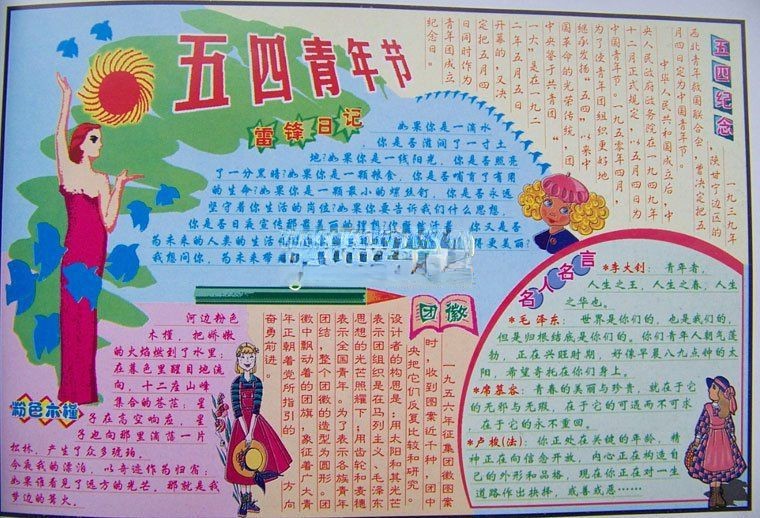 五四青年节
雷锋日记
如果你是一滴水
你是否滋润了一寸土
地?如果你是一线阳光，你是否照亮
了一分黑暗?如果你是一颗粮食，你是否哺育了有用
的生命?如果你是一颗最小的螺丝钉，你是否永远
坚守着你生活的岗位?如果你要告诉我们什么思想，
你是否日夜宣传那最美丽的理想
你又是否
为未来的人类的生活
得更美丽?
我想问你，为未来带
五四纪念
一九三九年
陕甘宁边区的
西北青年救国联合会，曾决定把五
月四日定为中国青年节。
中华人民共和国成立后，中
央人民政府政务院在一九四九年
十二月正式规定，以五月四日为
中国青年节。一九五零年四月，
为了使青年团组织更好地
继承发扬“五四”以来中
国革命的光荣传统，团
中央鉴于共青团“
一大”是在一九二
二年五月五日
开幕的，又决
定把五月四
日同时作为
青年团成立
纪念日。
名人名言
*李大钊：青年者，
人生之王，人生之春，人生
之华也。
*毛泽东：世界是你们的，也是我们的，
但是归根结底是你们的。你们青年人朝气蓬
勃，正在兴旺时期，好像早晨八九点钟的太
阳，希望寄托在你们身上。
*席慕容：青春的美丽与珍贵，就在于它
的无邪与无瑕，在于它的可遇而不可求
在于它的永不重回。
*卢梭(法)：你正处在关键的年龄，精
神正在向信念开放，内心正在构造自
己的外形和品格，现在你正在对一生
道路作出抉择，或善或恶……
团徽
一九五六年征集团徽图案
时，收到图案近千种，团中
央把它们反复比较和研究。
设计者的构思是：用太阳和其光芒
表示团组织是在马列主义、毛泽东
思想的光芒照耀下；用齿轮和麦穗
表示全国青年。为了表示各族青年
团结，整个团徽的造型为圆形。团
徽中飘动着的团旗，象征着广大青
年正朝着党所指引的 方向
奋勇前进。
粉色木槿
河边粉色
木槿，把娇嫩
的火焰燃到了水里；
在暮色里醒目地流
向，十二座山峰
集合的苍茫；星
子在高空响应，星
子也向那里滴落一片
松林，产生了众多琥珀。
今夜我的漂泊，以奇迹作为归宿；
如果谁看见了远方的光芒，那就是我
梦边的篝火。